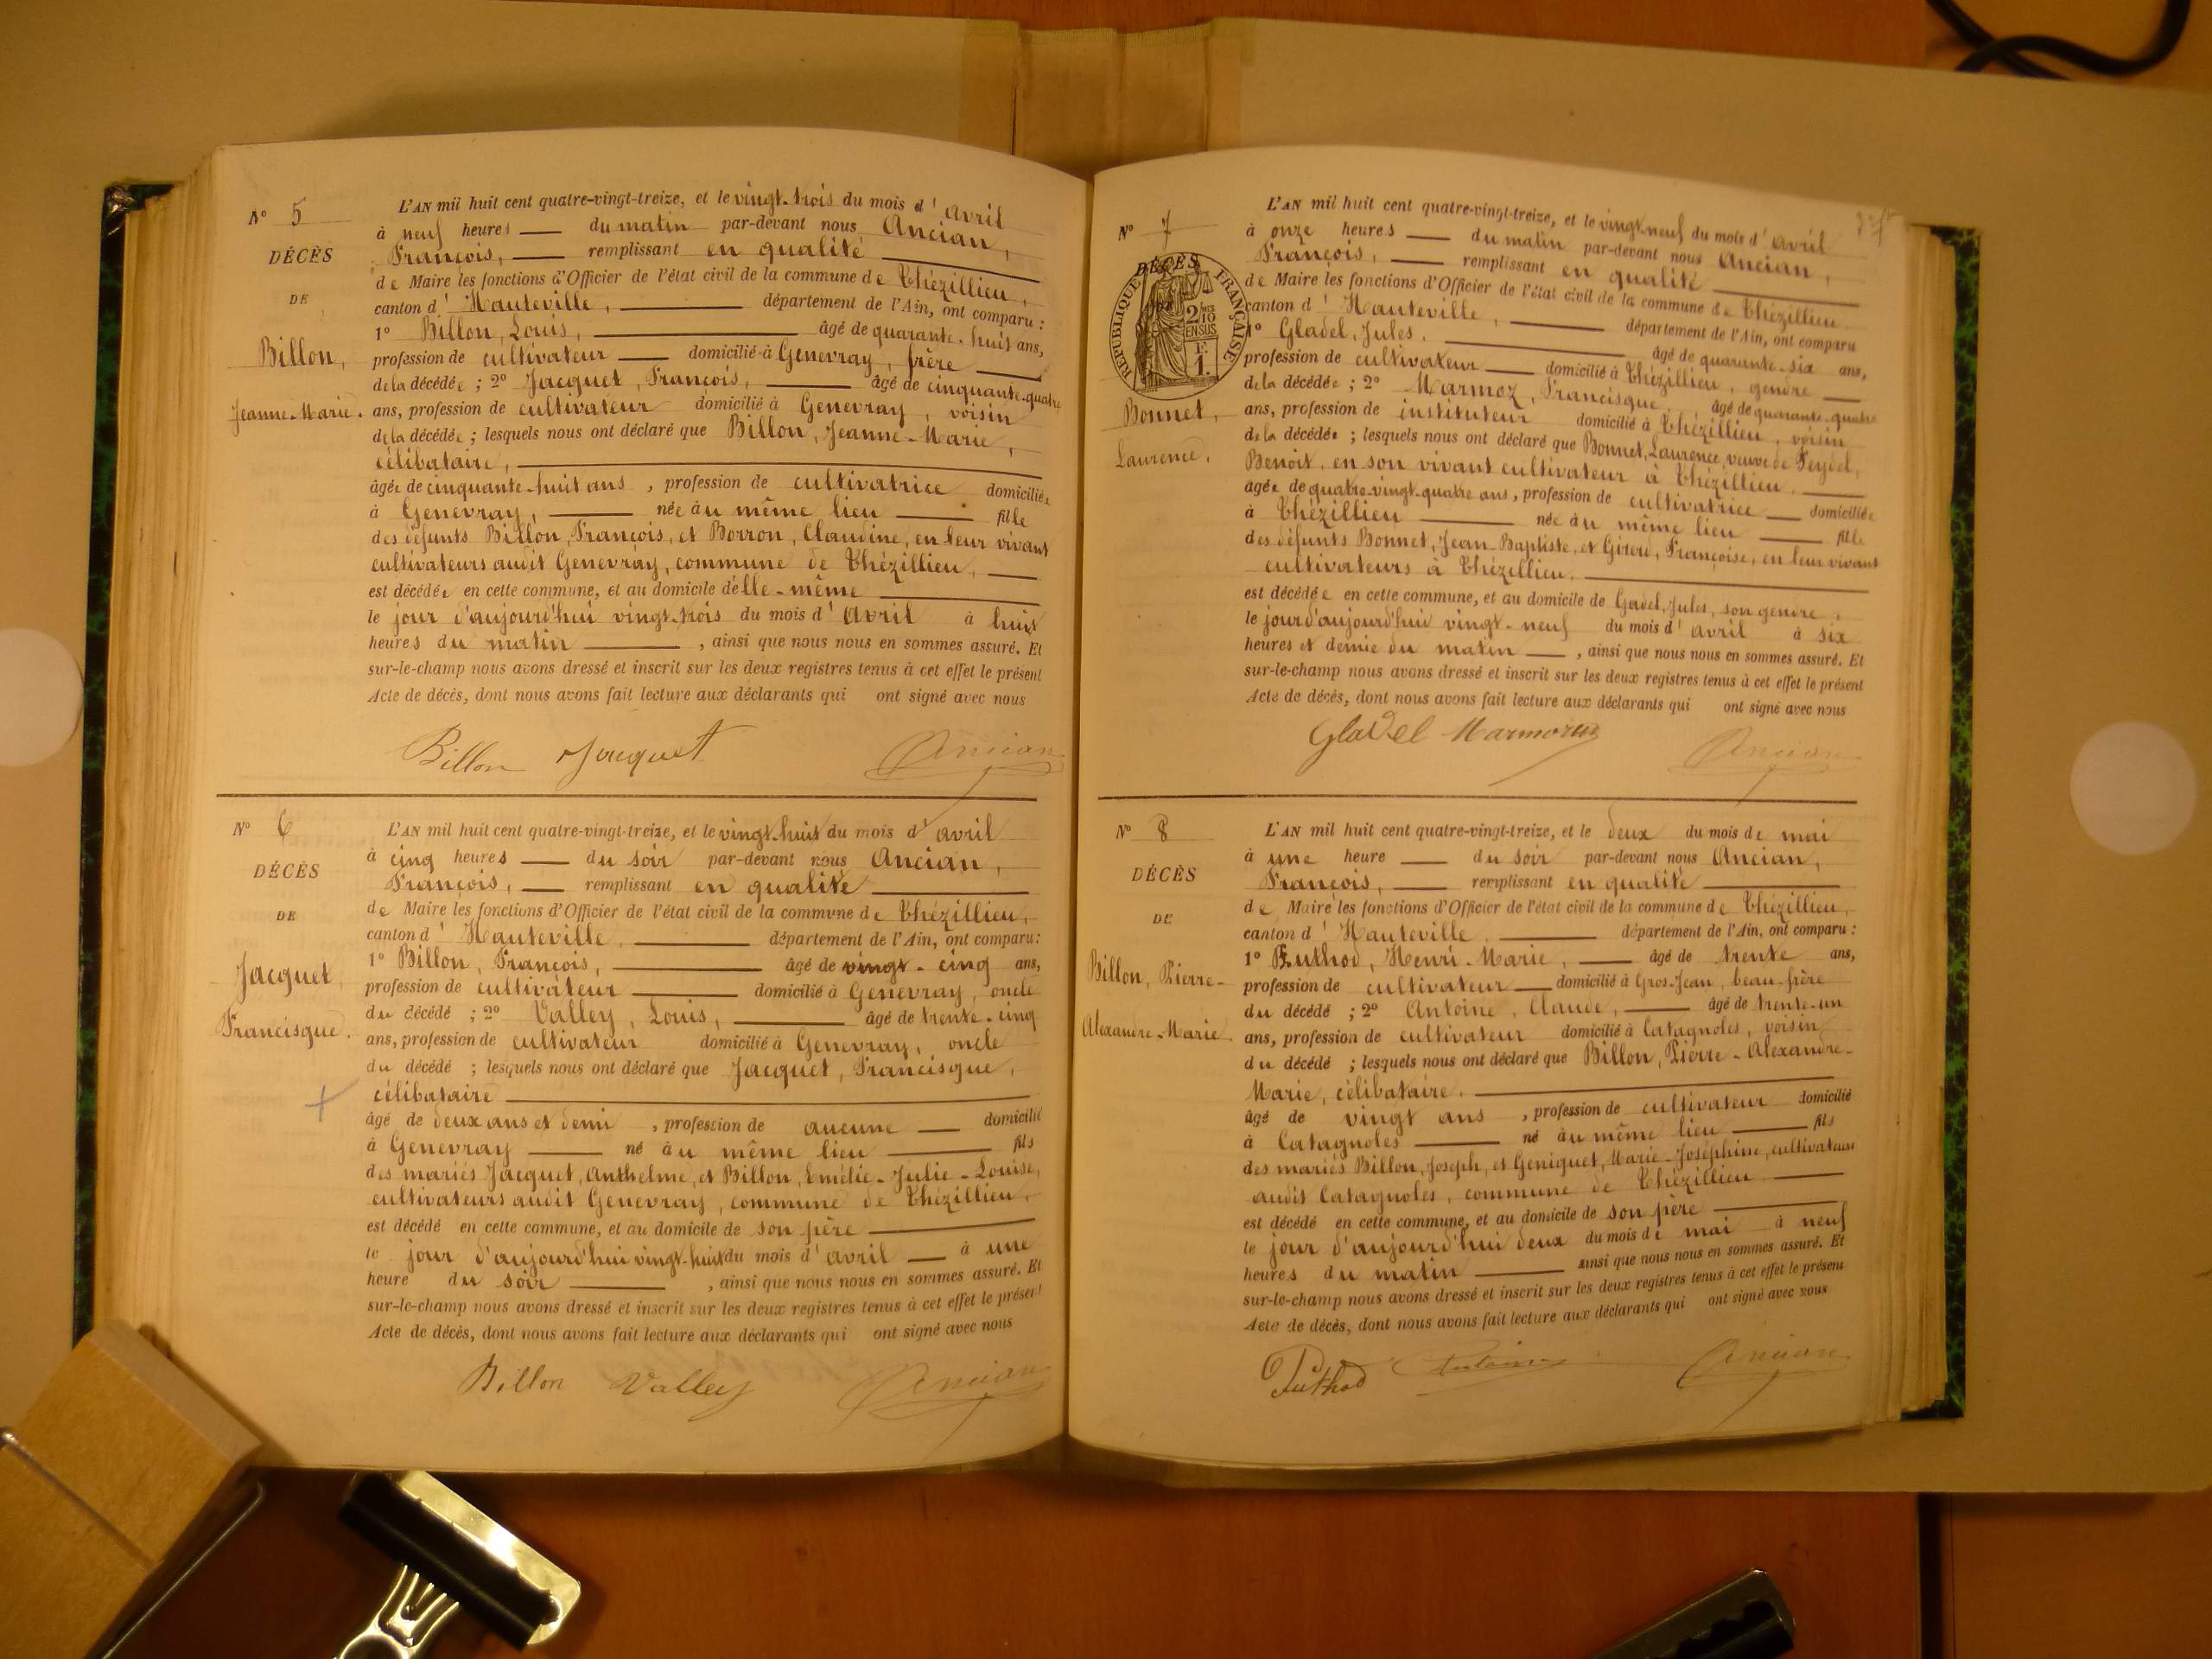 N° 5
DÉCÈS
DE
Billon,
Jeanne-Marie.
L'AN mil huit cent quatre-vingt-treize, et le vingt-trois du mois d'avril
à neuf heures — du matin par-devant nous Ancian,
François, — remplissant en qualité
de Maire les fonctions d'Officier de l'état civil de la commune de Thézillieu,
canton d'Hauteville, — département de l'Ain, ont comparu :
1° Billon, Louis, — âgé de quarante-huit ans,
profession de cultivateur — domicilié à Genevray, frère
de la décédée ; 2° Jacquet, François, — âgé de cinquante-quatre
ans, profession de cultivateur domicilié à Genevray, voisin
de la décédée ; lesquels nous ont déclaré que Billon, Jeanne-Marie,
célibataire,
âgée de cinquante-huit ans, profession de cultivatrice domiciliée
à Genevray, — née au même lieu — fille
des défunts Billon, François, et Borron, Claudine, en leur vivant
cultivateurs audit Genevray, commune de Thézillieu, —
est décédée en cette commune, et au domicile d'elle-même
le jour d'aujourd'hui vingt-trois du mois d'avril à huit
heures du matin —, ainsi que nous nous en sommes assuré. Et
sur-le-champ nous avons dressé et inscrit sur les deux registres tenus à cet effet le présent
Acte de décès, dont nous avons fait lecture aux déclarants qui ont signé avec nous
Billon Jacquet Ancian
N° 6
DÉCÈS
DE
Jacquet,
Francisque.
L'AN mil huit cent quatre-vingt-treize, et le vingt-huit du mois d'avril
à cinq heures — du soir par-devant nous Ancian,
François, — remplissant en qualité
de Maire les fonctions d'Officier de l'état civil de la commune de Thézillieu,
canton d'Hauteville, — département de l'Ain, ont comparu :
1° Billon, François, — âgé de vingt-cinq ans,
profession de cultivateur — domicilié à Genevray, oncle
du décédé ; 2° Valley, Louis, — âgé de trente-cinq
ans, profession de cultivateur domicilié à Genevray, oncle
du décédé ; lesquels nous ont déclaré que Jacquet, Francisque,
célibataire
âgé de deux ans et demi, profession de aucune — domicilié
à Genevray — né au même lieu — fils
des mariés Jacquet, Anthelme, et Billon, Emélie-Julie-Louise,
cultivateurs audit Genevray, commune de Thézillieu,
est décédé en cette commune, et au domicile de son père
le jour d'aujourd'hui vingt-huit du mois d'avril — à une
heure du soir —, ainsi que nous nous en sommes assuré. Et
sur-le-champ nous avons dressé et inscrit sur les deux registres tenus à cet effet le présent
Acte de décès, dont nous avons fait lecture aux déclarants qui ont signé avec nous
Billon Valley Ancian
N° 7
DÉCÈS
RÉPUBLIQUE FRANÇAISE
Bonnet,
Laurence.
L'AN mil huit cent quatre-vingt-treize, et le vingt-neuf du mois d'avril
à onze heures — du matin par-devant nous Ancian,
François, — remplissant en qualité
de Maire les fonctions d'Officier de l'état civil de la commune de Thézillieu
canton d'Hauteville, — département de l'Ain, ont comparu
1° Gladel, Jules, — âgé de quarante-six ans,
profession de cultivateur — domicilié à Thézillieu, gendre
de la décédée ; 2° Marmoz, Francisque, âgé de quarante-quatre
ans, profession de instituteur domicilié à Thézillieu, voisin
de la décédée ; lesquels nous ont déclaré que Bonnet, Laurence, veuve de Seydel,
Benoit, en son vivant cultivateur à Thézillieu.
âgée de quatre-vingt-quatre ans, profession de cultivatrice — domiciliée
à Thézillieu — née au même lieu — fille
des défunts Bonnet, Jean-Baptiste, et Girerd, Françoise, en leur vivant
cultivateurs à Thézillieu.
est décédée en cette commune, et au domicile de Gladel, Jules, son gendre,
le jour d'aujourd'hui vingt-neuf du mois d'avril à six
heures et demie du matin —, ainsi que nous nous en sommes assuré. Et
sur-le-champ nous avons dressé et inscrit sur les deux registres tenus à cet effet le présent
Acte de décès, dont nous avons fait lecture aux déclarants qui ont signé avec nous
Gladel Marmoz Ancian
N° 8
DÉCÈS
DE
Billon, Pierre-
Alexandre-Marie
L'AN mil huit cent quatre-vingt-treize, et le deux du mois de mai
à une heure — du soir par-devant nous Ancian,
François, — remplissant en qualité
de Maire les fonctions d'Officier de l'état civil de la commune de Thézillieu,
canton d'Hauteville, — département de l'Ain, ont comparu :
1° Puthod, Henri-Marie, — âgé de trente ans,
profession de cultivateur — domicilié à Gros-Jean, beau-frère
du décédé ; 2° Antoine, Claude, — âgé de trente-un
ans, profession de cultivateur domicilié à Catagnoles, voisin
du décédé ; lesquels nous ont déclaré que Billon, Pierre-Alexandre-
Marie, célibataire.
âgé de vingt ans, profession de cultivateur domicilié
à Catagnoles — né au même lieu — fils
des mariés Billon, Joseph, et Geniquet, Marie-Joséphine, cultivateurs
audit Catagnoles, commune de Thézillieu
est décédé en cette commune, et au domicile de son père
le jour d'aujourd'hui deux du mois de mai à neuf
heures du matin — ainsi que nous nous en sommes assuré. Et
sur-le-champ nous avons dressé et inscrit sur les deux registres tenus à cet effet le présent
Acte de décès, dont nous avons fait lecture aux déclarants qui ont signé avec nous
Puthod Antoine Ancian